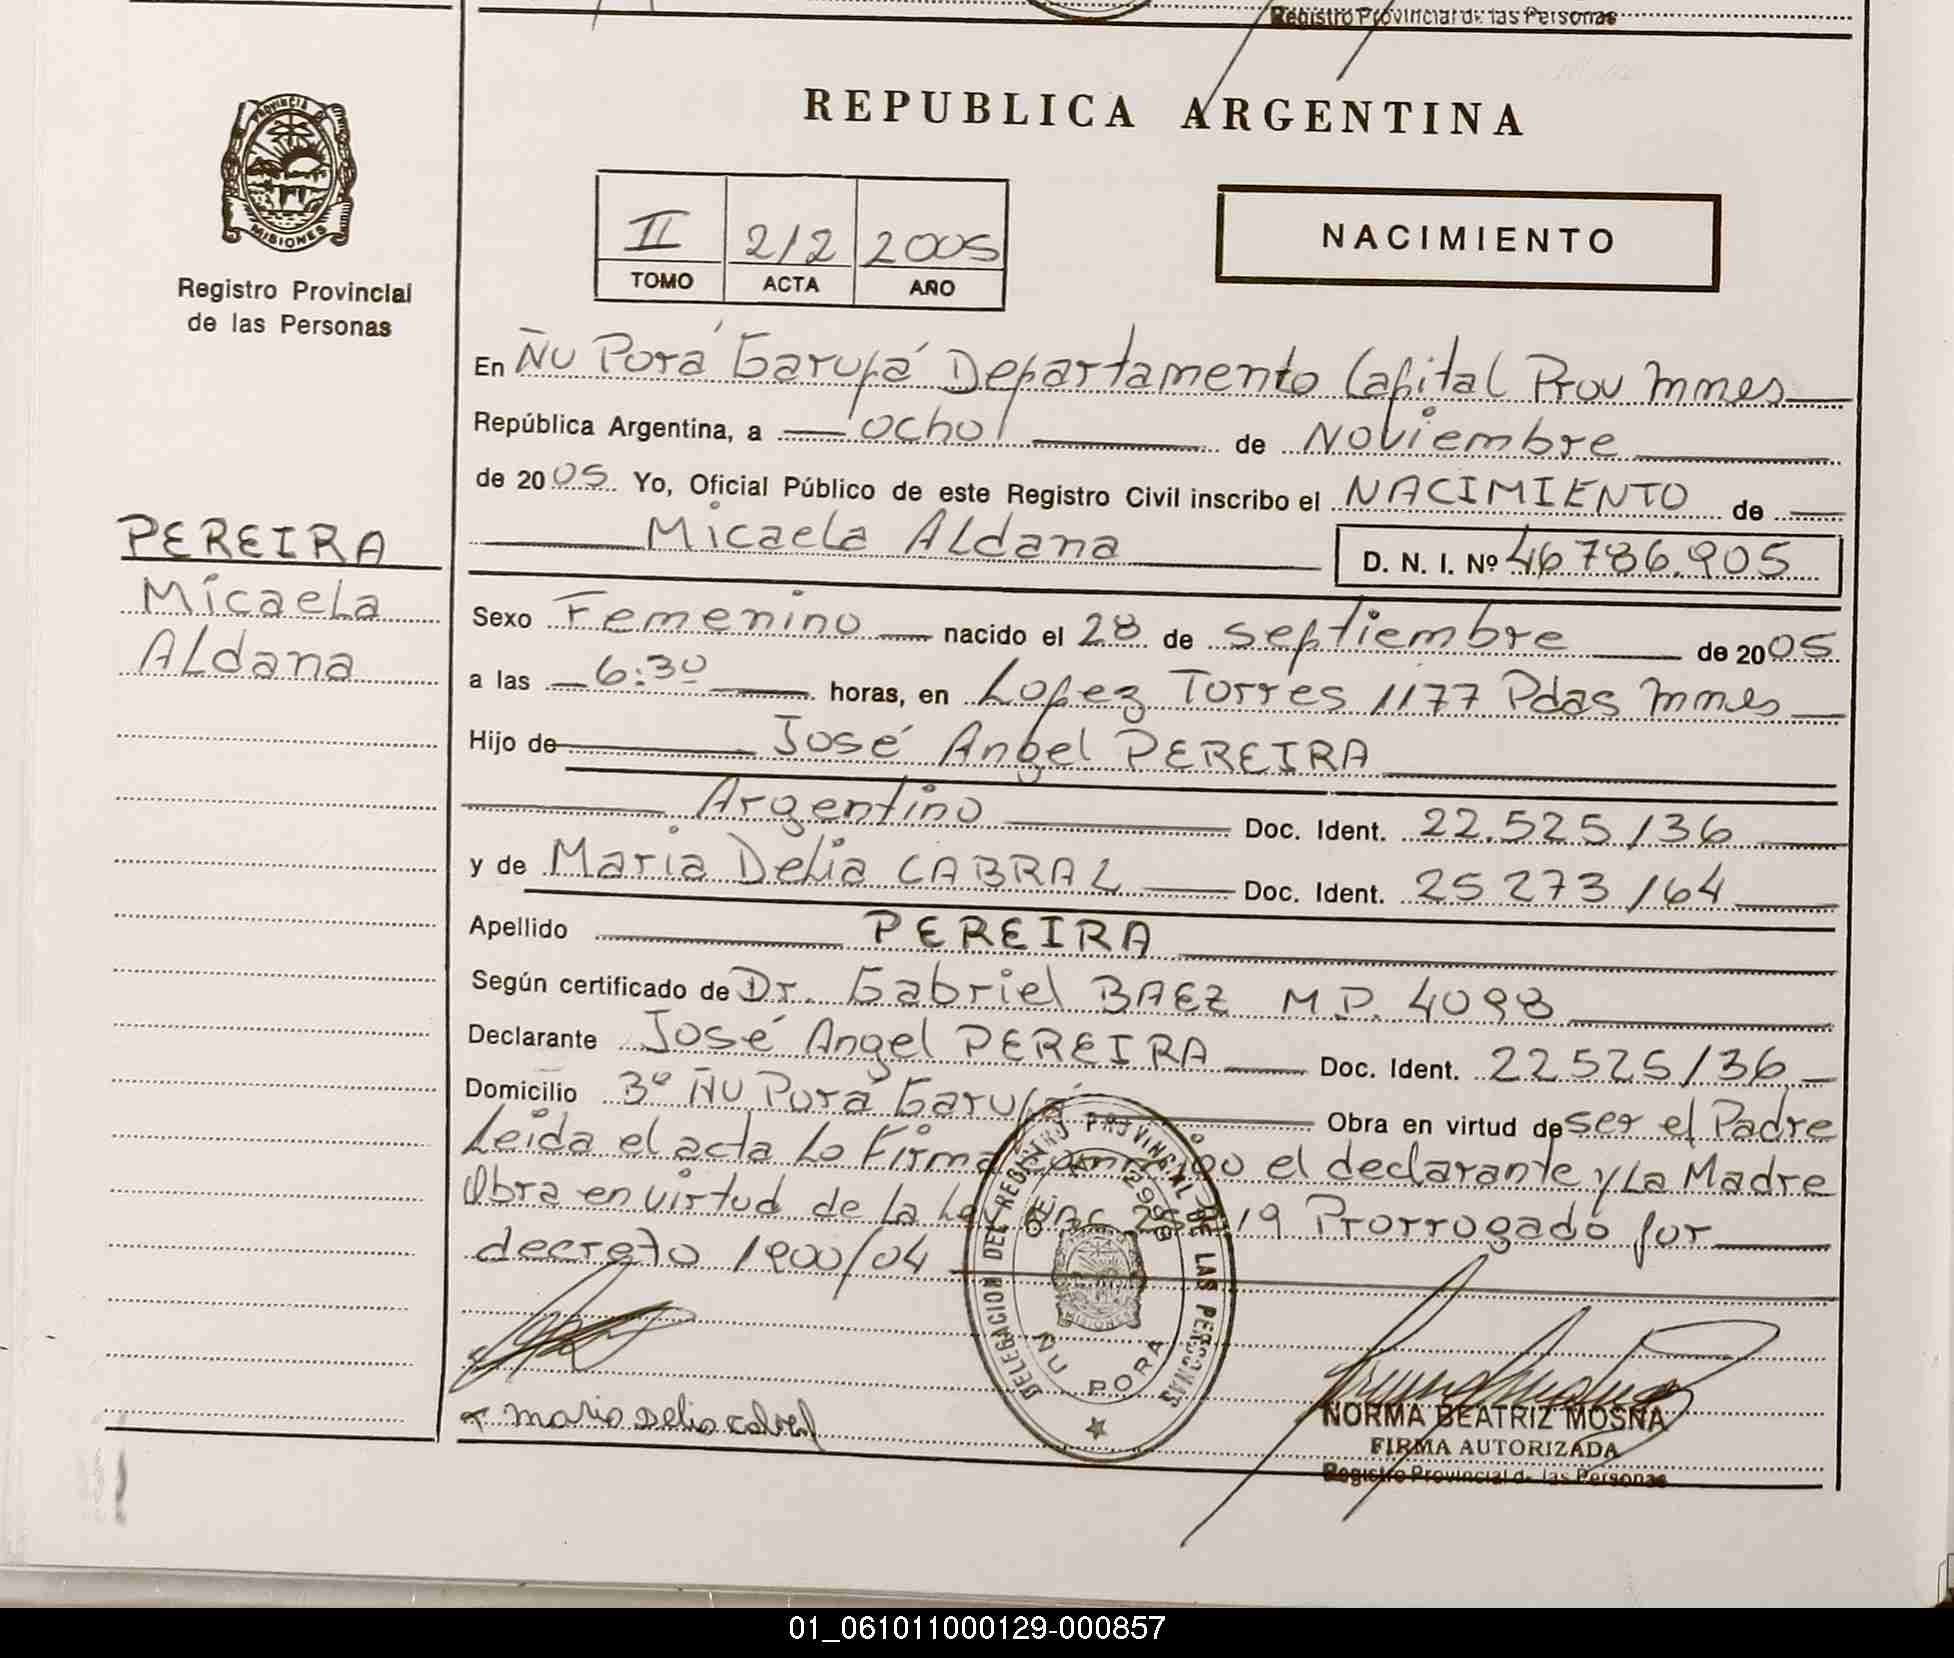 Registro Provincial de las Personas
REPUBLICA ARGENTINA
PROVINCIA
MISIONES
Registro Provincial
de las Personas
II 212 2005
TOMO ACTA AÑO
NACIMIENTO
PEREIRA
Micaela
Aldana
En Ñu Porá Garupá Departamento Capital Prov Mnes
República Argentina, a ocho de Noviembre
de 2005 Yo, Oficial Público de este Registro Civil inscribo el NACIMIENTO de
Micaela Aldana D. N. I. Nº 46786.905
Sexo Femenino nacido el 28 de septiembre de 2005
a las 6:30 horas, en Lopez Torres 1177 Pdas Mnes
Hijo de José Angel PEREIRA
Argentino Doc. Ident. 22.525136
y de Maria Delia CABRAL Doc. Ident. 25273164
Apellido PEREIRA
Según certificado de Dr. Gabriel BAEZ M.P. 4098
Declarante José Angel PEREIRA Doc. Ident. 22525136
Domicilio Bº Ñu Porá Garupá Obra en virtud de ser el Padre
Leida el acta Lo Firma conmigo el declarante y La Madre
Obra en virtud de la Ley Nac 25819 Prorrogado por
decreto 1900/04
DELEGACION DEL REGISTRO PROVINCIAL DE LAS PERSONAS
MISIONES
ÑU PORA
Maria Delia Cabral
NORMA BEATRIZ MOSNA
FIRMA AUTORIZADA
Registro Provincial de las Personas
01_061011000129-000857